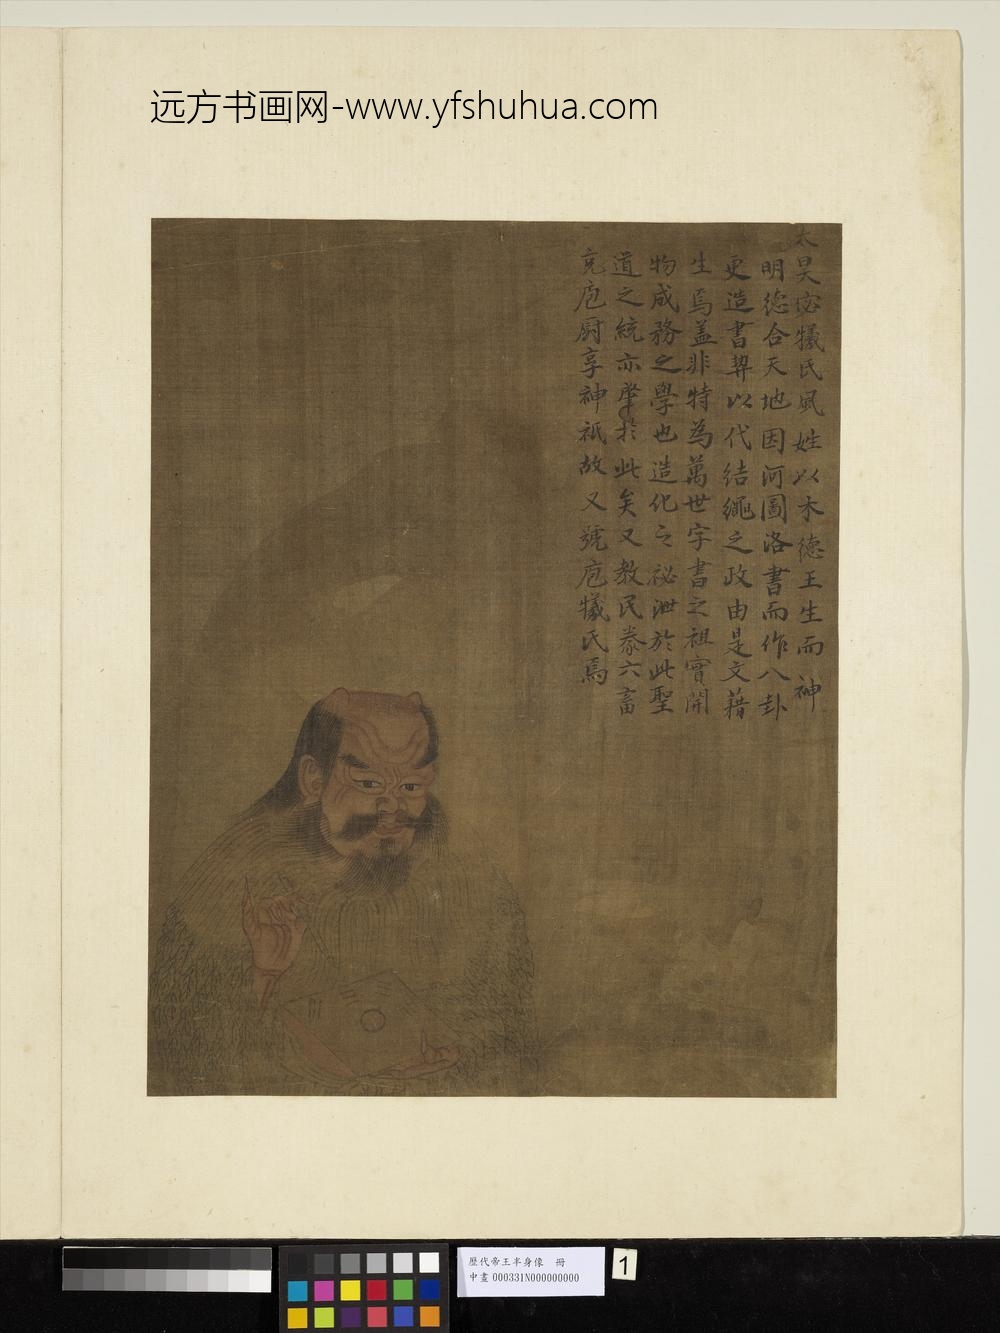 远方书画网-www.yfshuhua.com
太昊宓犧氏風姓以木德王生而神
明德合天地因河圖洛書而作八卦
更造書契以代結繩之政由是文藉
生焉盖非特為萬世字書之祖實開
物成務之學也造化之祕泄於此聖
道之統亦肇於此矣又教民豢六畜
充庖厨享神祇故又號庖犧氏焉
歷代帝王半身像 冊
中畫 000331N000000000
1